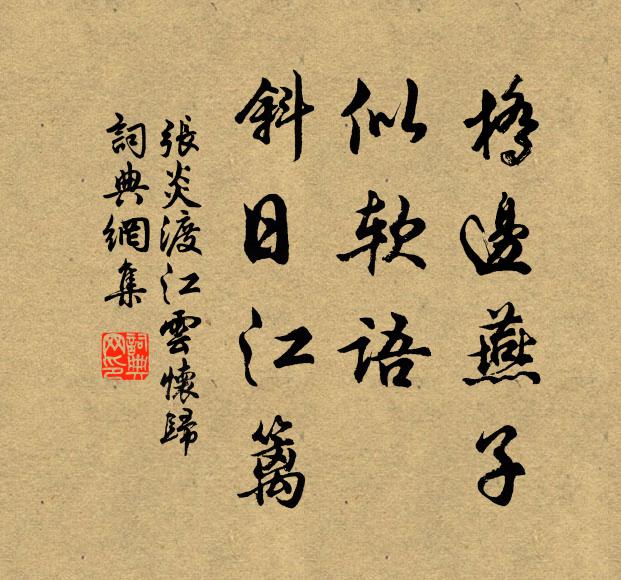 橋邊燕子
似軟語
斜日江蓠
張炎渡江雲懷歸
詞典網集
詞典
网印